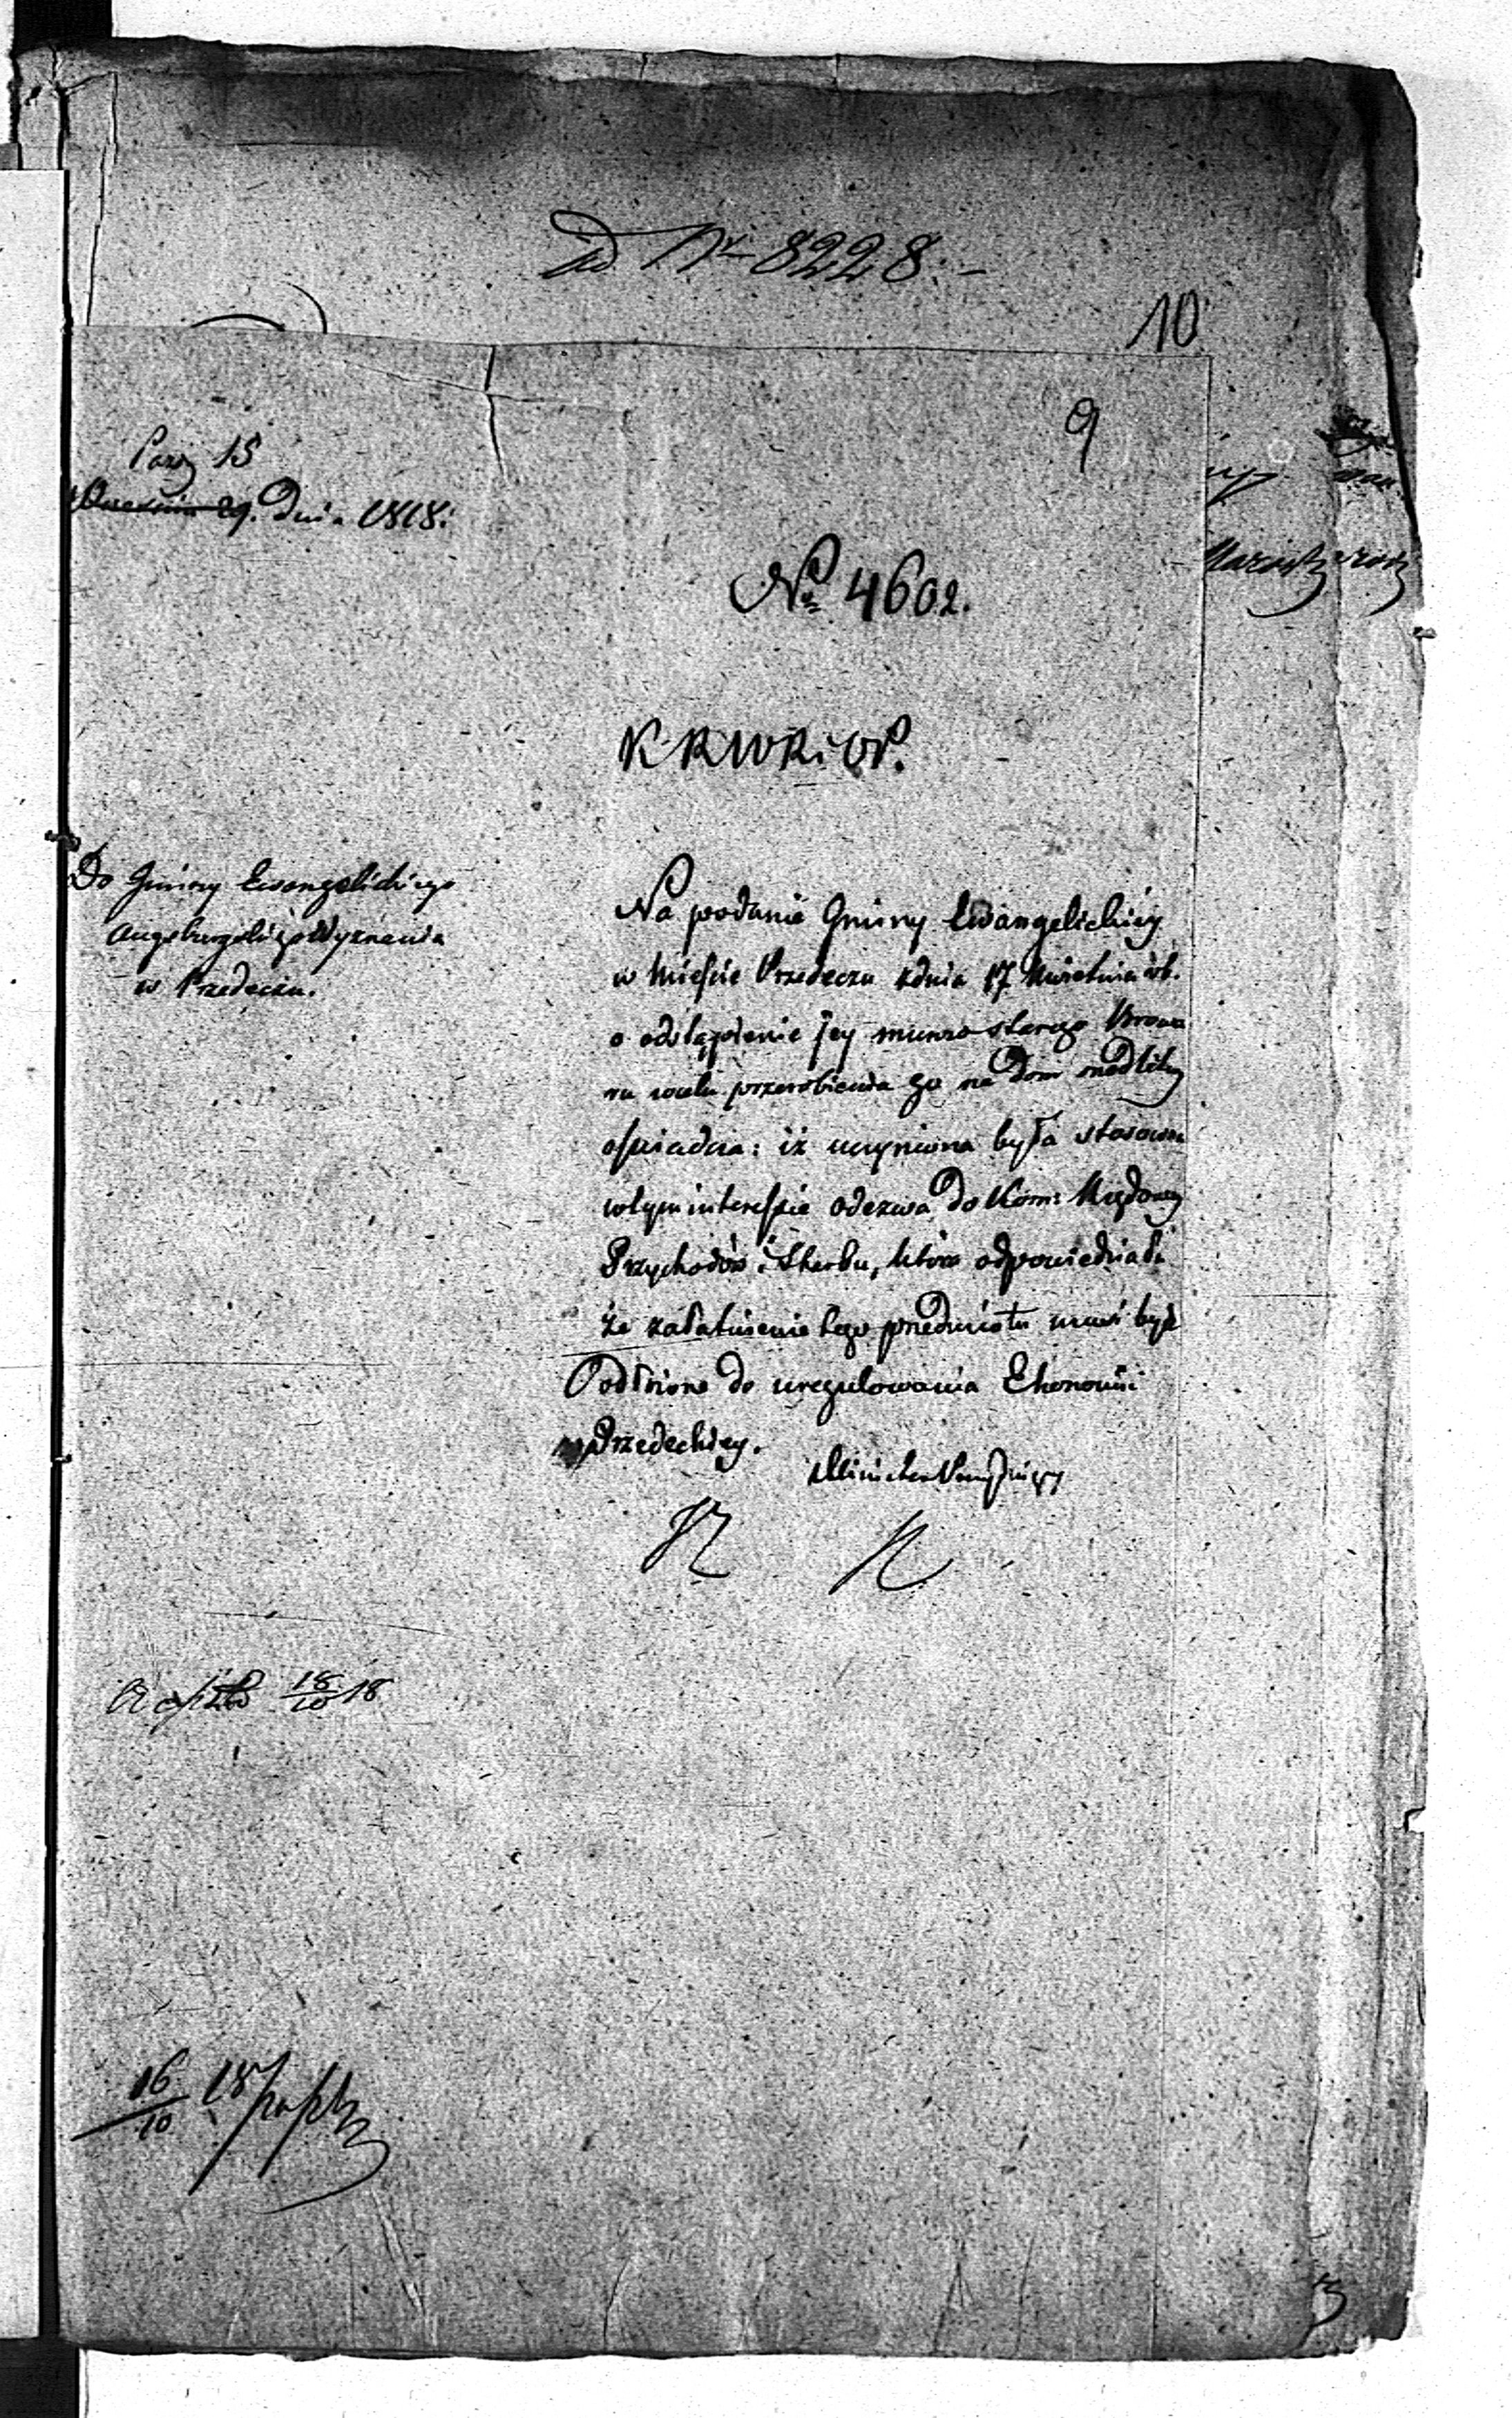 ad Nr 8228.
10
9
Paźdz 15
Września 29. Dnia 1818.
No 4602.
K R W R i O P.
Do Gminy Ewangelickiego
Augsburgskiego Wyznania
w Przedeczu.
Na podanie Gminy Ewangelickiey
w Mieście Przedeczu z dnia 17 Kwietnia rb.
o odstąpienie jey murów starego Browa
ru w celu przerobienia go na Dom modlitwy
oświadcza: iż uczyniona była stosowna
w tym interessie odezwa do Kom: Rządowey
Przychodów i Skarbu, która odpowiedziała
że załatwienie tego przedmiotu musi być
Odłożone do uregulowania Ekonomii
Przedeckiey.
Minister Prezyduiący
18/10 18
16/10 18